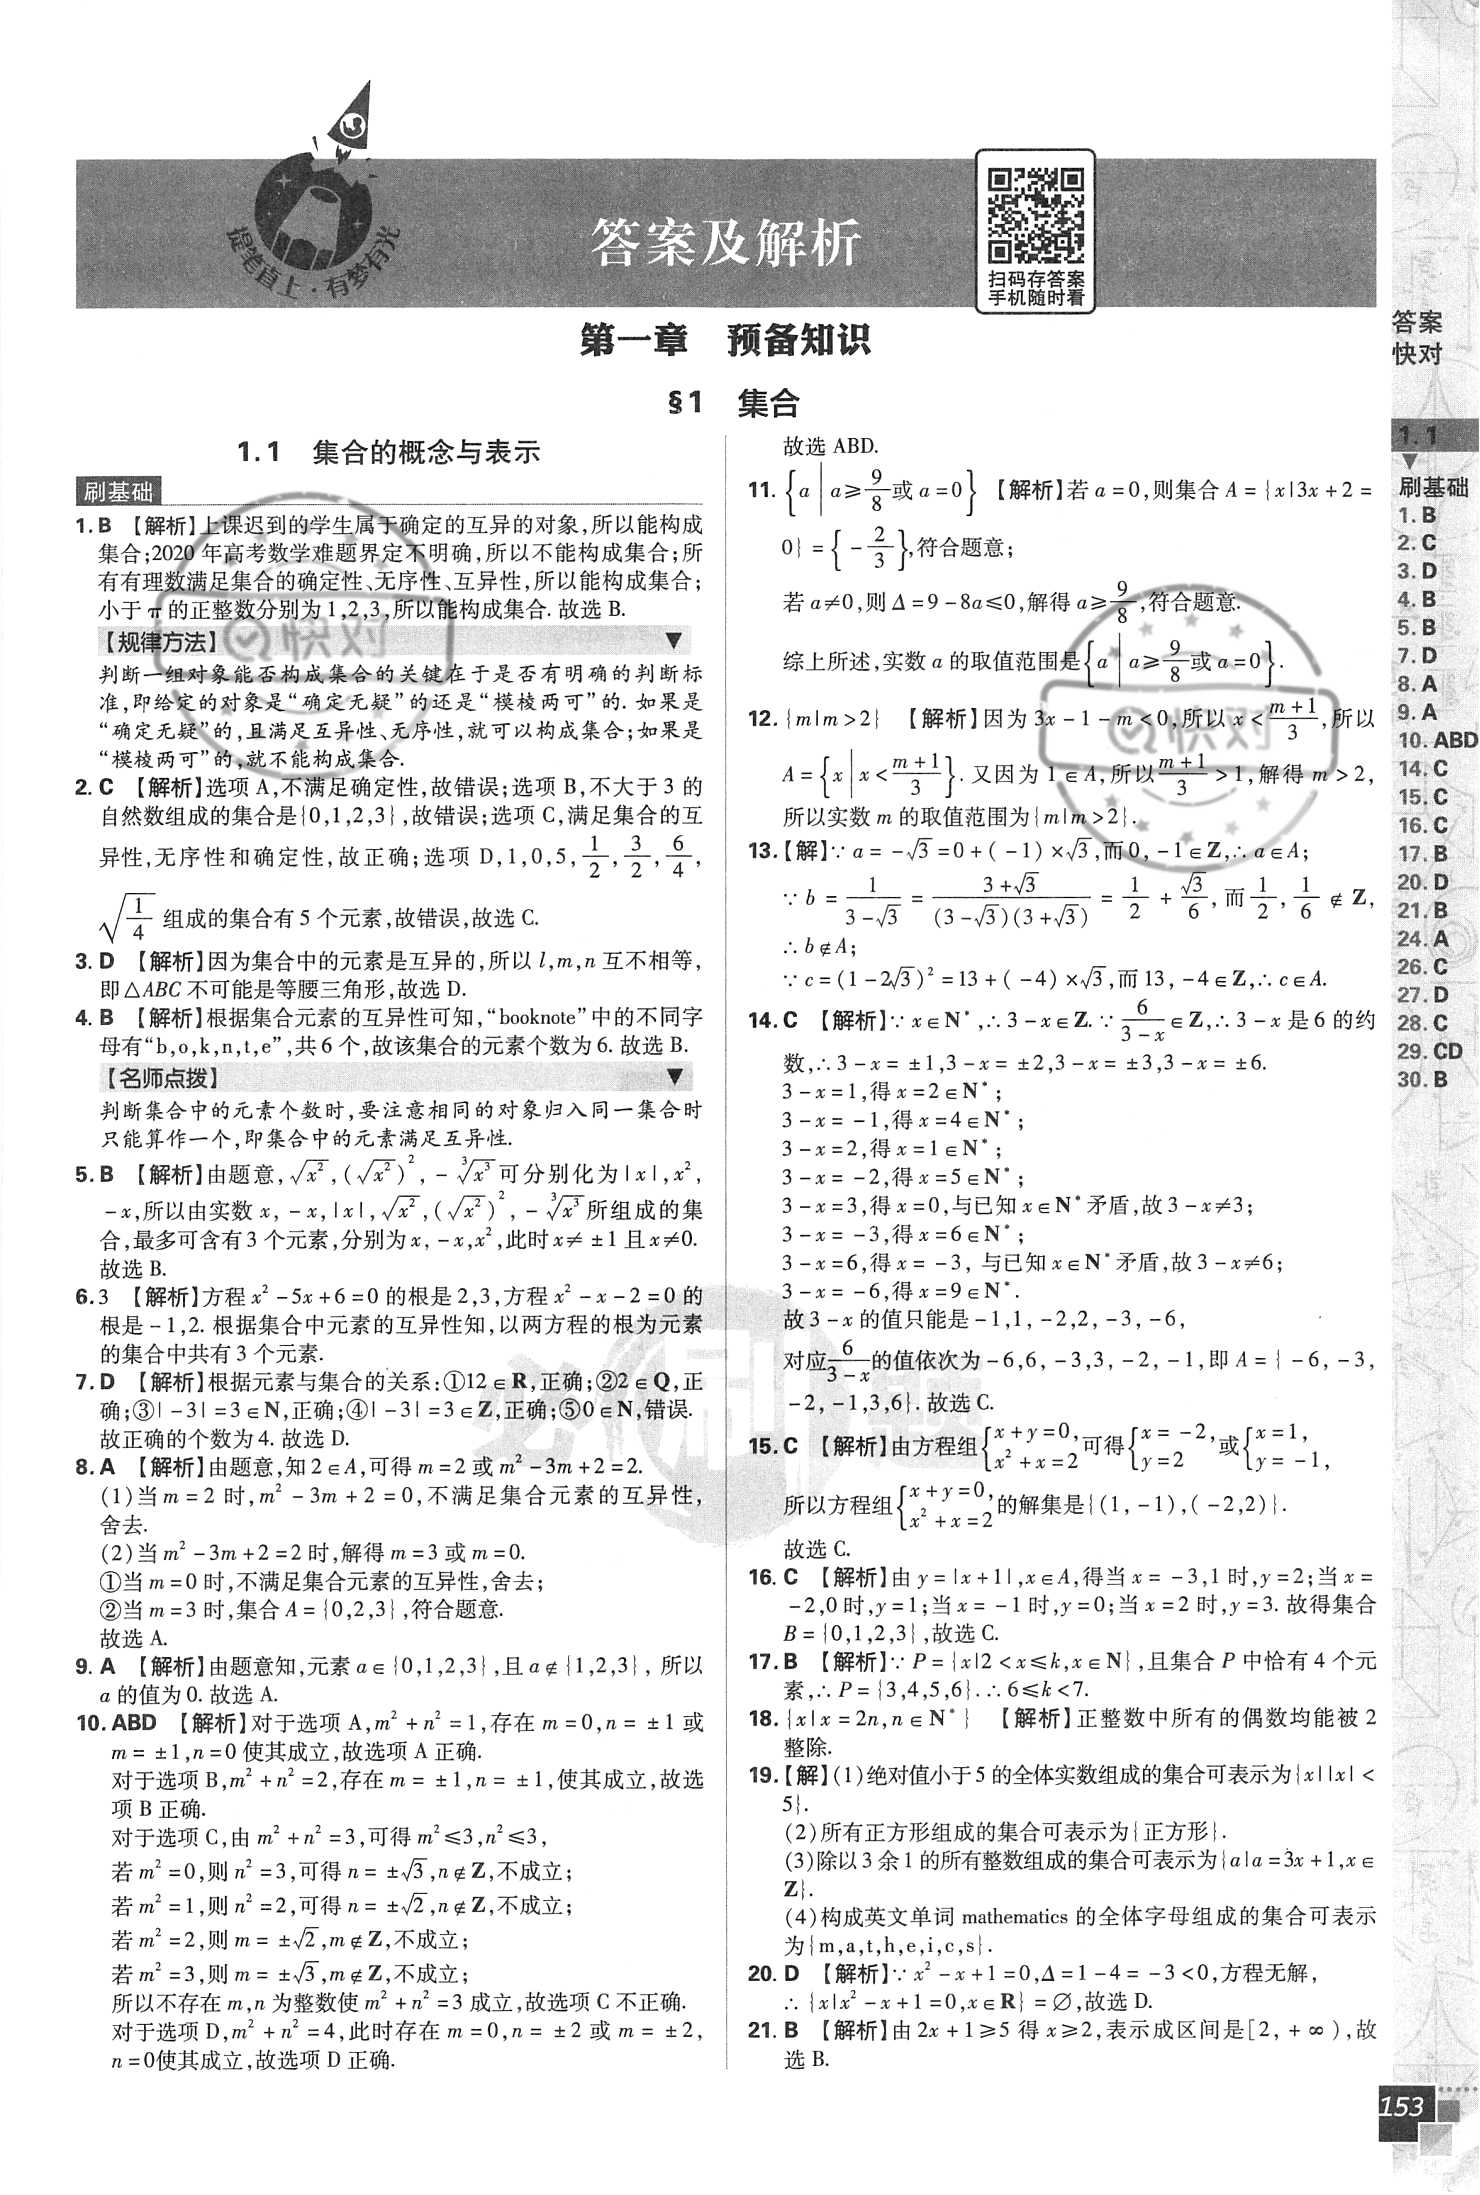 提笔直上·有梦有光
答案及解析
扫码存答案
手机随时看
第一章 预备知识
§1 集合
1.1 集合的概念与表示
刷基础
1. B 【解析】上课迟到的学生属于确定的互异的对象,所以能构成
集合;2020年高考数学难题界定不明确,所以不能构成集合;所
有有理数满足集合的确定性、无序性、互异性,所以能构成集合;
小于π的正整数分别为1,2,3,所以能构成集合. 故选B.
【规律方法】
判断一组对象能否构成集合的关键在于是否有明确的判断标
准,即给定的对象是“确定无疑”的还是“模棱两可”的. 如果是
“确定无疑”的,且满足互异性、无序性,就可以构成集合;如果是
“模棱两可”的,就不能构成集合.
2. C 【解析】选项A,不满足确定性,故错误;选项B,不大于3的
自然数组成的集合是{0,1,2,3},故错误;选项C,满足集合的互
异性,无序性和确定性,故正确;选项D,1,0,5,1/2,3/2,6/4,
√(1/4) 组成的集合有5个元素,故错误,故选C.
3. D 【解析】因为集合中的元素是互异的,所以l,m,n互不相等,
即△ABC不可能是等腰三角形,故选D.
4. B 【解析】根据集合元素的互异性可知,“booknote”中的不同字
母有“b,o,k,n,t,e”,共6个,故该集合的元素个数为6. 故选B.
【名师点拨】
判断集合中的元素个数时,要注意相同的对象归入同一集合时
只能算作一个,即集合中的元素满足互异性.
5. B 【解析】由题意,√x²,(√x²)²,-∛x³可分别化为|x|,x²,
-x,所以由实数x,-x,|x|,√x²,(√x²)²,-∛x³所组成的集
合,最多可含有3个元素,分别为x,-x,x²,此时x≠±1且x≠0.
故选B.
6. 3 【解析】方程x²-5x+6=0的根是2,3,方程x²-x-2=0的
根是-1,2. 根据集合中元素的互异性知,以两方程的根为元素
的集合中共有3个元素.
7. D 【解析】根据元素与集合的关系:①12∈R,正确;②2∈Q,正
确;③|-3|=3∈N,正确;④|-3|=3∈Z,正确;⑤0∈N,错误.
故正确的个数为4. 故选D.
8. A 【解析】由题意,知2∈A,可得m=2或m²-3m+2=2.
(1)当m=2时,m²-3m+2=0,不满足集合元素的互异性,
舍去.
(2)当m²-3m+2=2时,解得m=3或m=0.
①当m=0时,不满足集合元素的互异性,舍去;
②当m=3时,集合A={0,2,3},符合题意.
故选A.
9. A 【解析】由题意知,元素a∈{0,1,2,3},且a∉{1,2,3},所以
a的值为0. 故选A.
10. ABD 【解析】对于选项A,m²+n²=1,存在m=0,n=±1或
m=±1,n=0使其成立,故选项A正确.
对于选项B,m²+n²=2,存在m=±1,n=±1,使其成立,故选
项B正确.
对于选项C,由m²+n²=3,可得m²≤3,n²≤3,
若m²=0,则n²=3,可得n=±√3,n∉Z,不成立;
若m²=1,则n²=2,可得n=±√2,n∉Z,不成立;
若m²=2,则m=±√2,m∉Z,不成立;
若m²=3,则m=±√3,m∉Z,不成立;
所以不存在m,n为整数使m²+n²=3成立,故选项C不正确.
对于选项D,m²+n²=4,此时存在m=0,n=±2或m=±2,
n=0使其成立,故选项D正确.
故选ABD.
11. {a|a≥9/8或a=0} 【解析】若a=0,则集合A={x|3x+2=
0}={-2/3},符合题意;
若a≠0,则Δ=9-8a≤0,解得a≥9/8,符合题意.
综上所述,实数a的取值范围是{a|a≥9/8或a=0}.
12. {m|m>2} 【解析】因为3x-1-m<0,所以x<(m+1)/3,所以
A={x|x<(m+1)/3}. 又因为1∈A,所以(m+1)/3>1,解得m>2,
所以实数m的取值范围为{m|m>2}.
13.【解】∵a=-√3=0+(-1)×√3,而0,-1∈Z,∴a∈A;
∵b=1/(3-√3)=(3+√3)/((3-√3)(3+√3))=1/2+√3/6,而1/2,1/6∉Z,
∴b∉A;
∵c=(1-2√3)²=13+(-4)×√3,而13,-4∈Z,∴c∈A.
14. C 【解析】∵x∈N*,∴3-x∈Z.∵6/(3-x)∈Z,∴3-x是6的约
数,∴3-x=±1,3-x=±2,3-x=±3,3-x=±6.
3-x=1,得x=2∈N*;
3-x=-1,得x=4∈N*;
3-x=2,得x=1∈N*;
3-x=-2,得x=5∈N*;
3-x=3,得x=0,与已知x∈N*矛盾,故3-x≠3;
3-x=-3,得x=6∈N*;
3-x=6,得x=-3,与已知x∈N*矛盾,故3-x≠6;
3-x=-6,得x=9∈N*.
故3-x的值只能是-1,1,-2,2,-3,-6,
对应6/(3-x)的值依次为-6,6,-3,3,-2,-1,即A={-6,-3,
-2,-1,3,6}. 故选C.
15. C 【解析】由方程组{x+y=0, x²+x=2可得{x=-2, y=2或{x=1, y=-1,
所以方程组{x+y=0, x²+x=2的解集是{(1,-1),(-2,2)}.
故选C.
16. C 【解析】由y=|x+1|,x∈A,得当x=-3,1时,y=2;当x=
-2,0时,y=1;当x=-1时,y=0;当x=2时,y=3. 故得集合
B={0,1,2,3},故选C.
17. B 【解析】∵P={x|2<x≤k,x∈N},且集合P中恰有4个元
素,∴P={3,4,5,6}.∴6≤k<7.
18. {x|x=2n,n∈N*} 【解析】正整数中所有的偶数均能被2
整除.
19.【解】(1)绝对值小于5的全体实数组成的集合可表示为{x||x|<
5}.
(2)所有正方形组成的集合可表示为{正方形}.
(3)除以3余1的所有整数组成的集合可表示为{a|a=3x+1,x∈
Z}.
(4)构成英文单词mathematics的全体字母组成的集合可表示
为{m,a,t,h,e,i,c,s}.
20. D 【解析】∵x²-x+1=0,Δ=1-4=-3<0,方程无解,
∴{x|x²-x+1=0,x∈R}=∅,故选D.
21. B 【解析】由2x+1≥5得x≥2,表示成区间是[2,+∞),故
选B.
答案
快对
1.1
刷基础
1. B
2. C
3. D
4. B
5. B
7. D
8. A
9. A
10. ABD
14. C
15. C
16. C
17. B
20. D
21. B
24. A
26. C
27. D
28. C
29. CD
30. B
153
快对
快对
必刷题